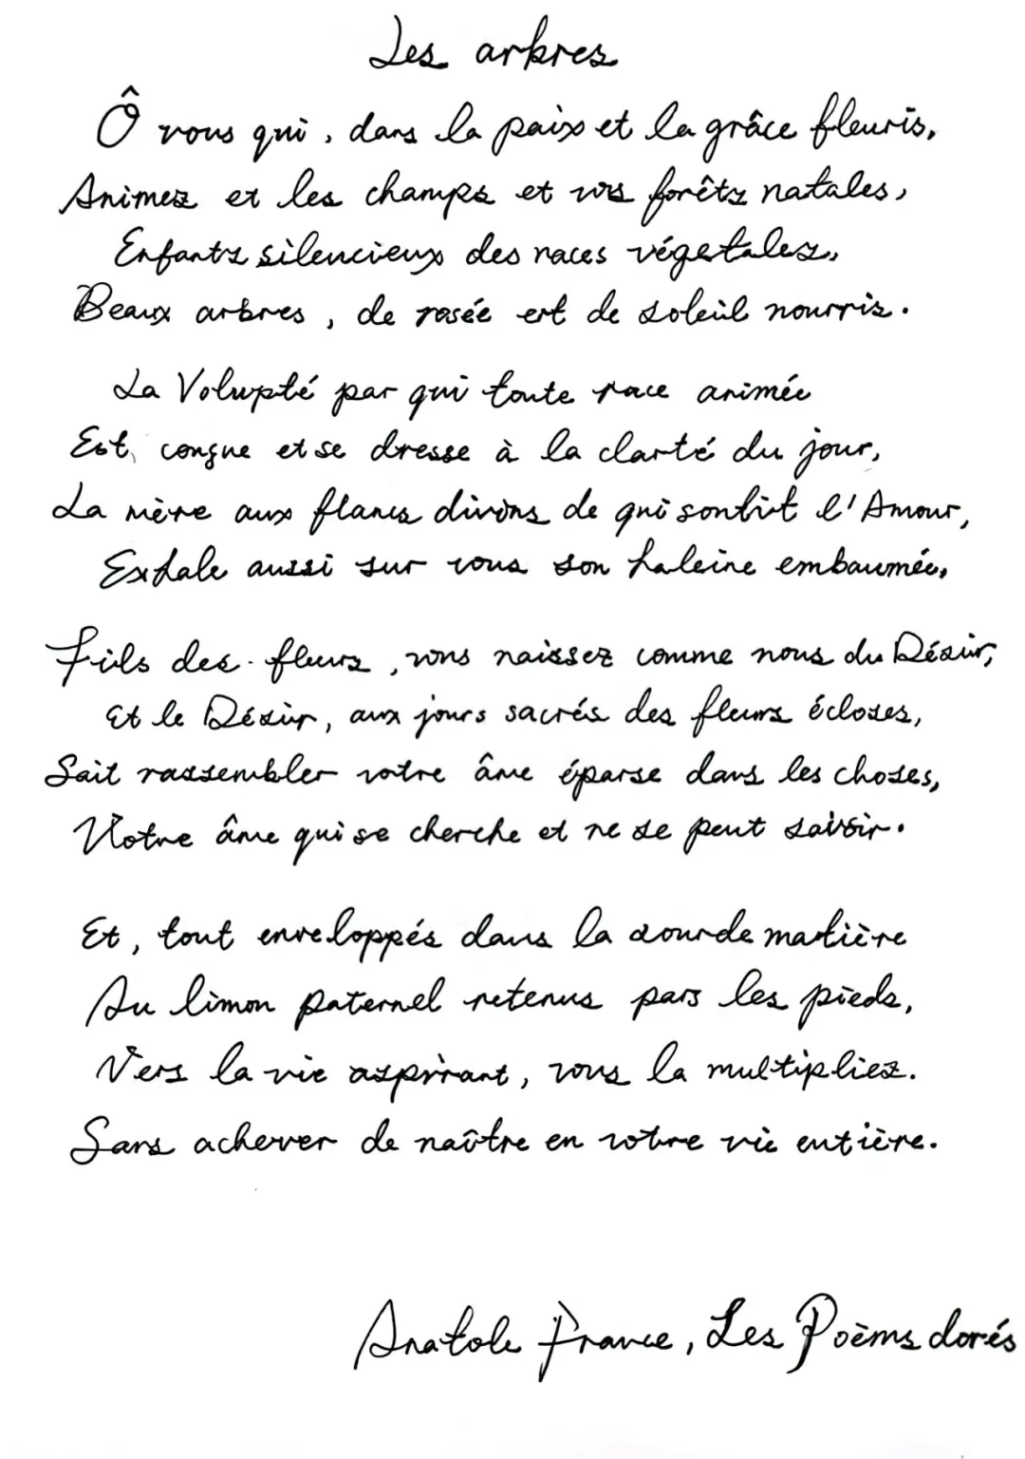 Les arbres
Ô vous qui, dans la paix et la grâce fleuris,
Animez et les champs et vos forêts natales,
Enfants silencieux des races végétales,
Beaux arbres, de rosée et de soleil nourris.
La Volupté par qui toute race animée
Est conçue et se dresse à la clarté du jour,
La mère aux flancs divins de qui sortit l'Amour,
Exhale aussi sur vous son haleine embaumée,
Fils des fleurs, vous naissez comme nous du Désir,
Et le Désir, aux jours sacrés des fleurs écloses,
Sait rassembler votre âme éparse dans les choses,
Votre âme qui se cherche et ne se peut saisir.
Et, tout enveloppés dans la sourde matière
Au limon paternel retenus par les pieds,
Vers la vie aspirant, vous la multipliez.
Sans achever de naître en votre vie entière.
Anatole France, Les Poèms dorés